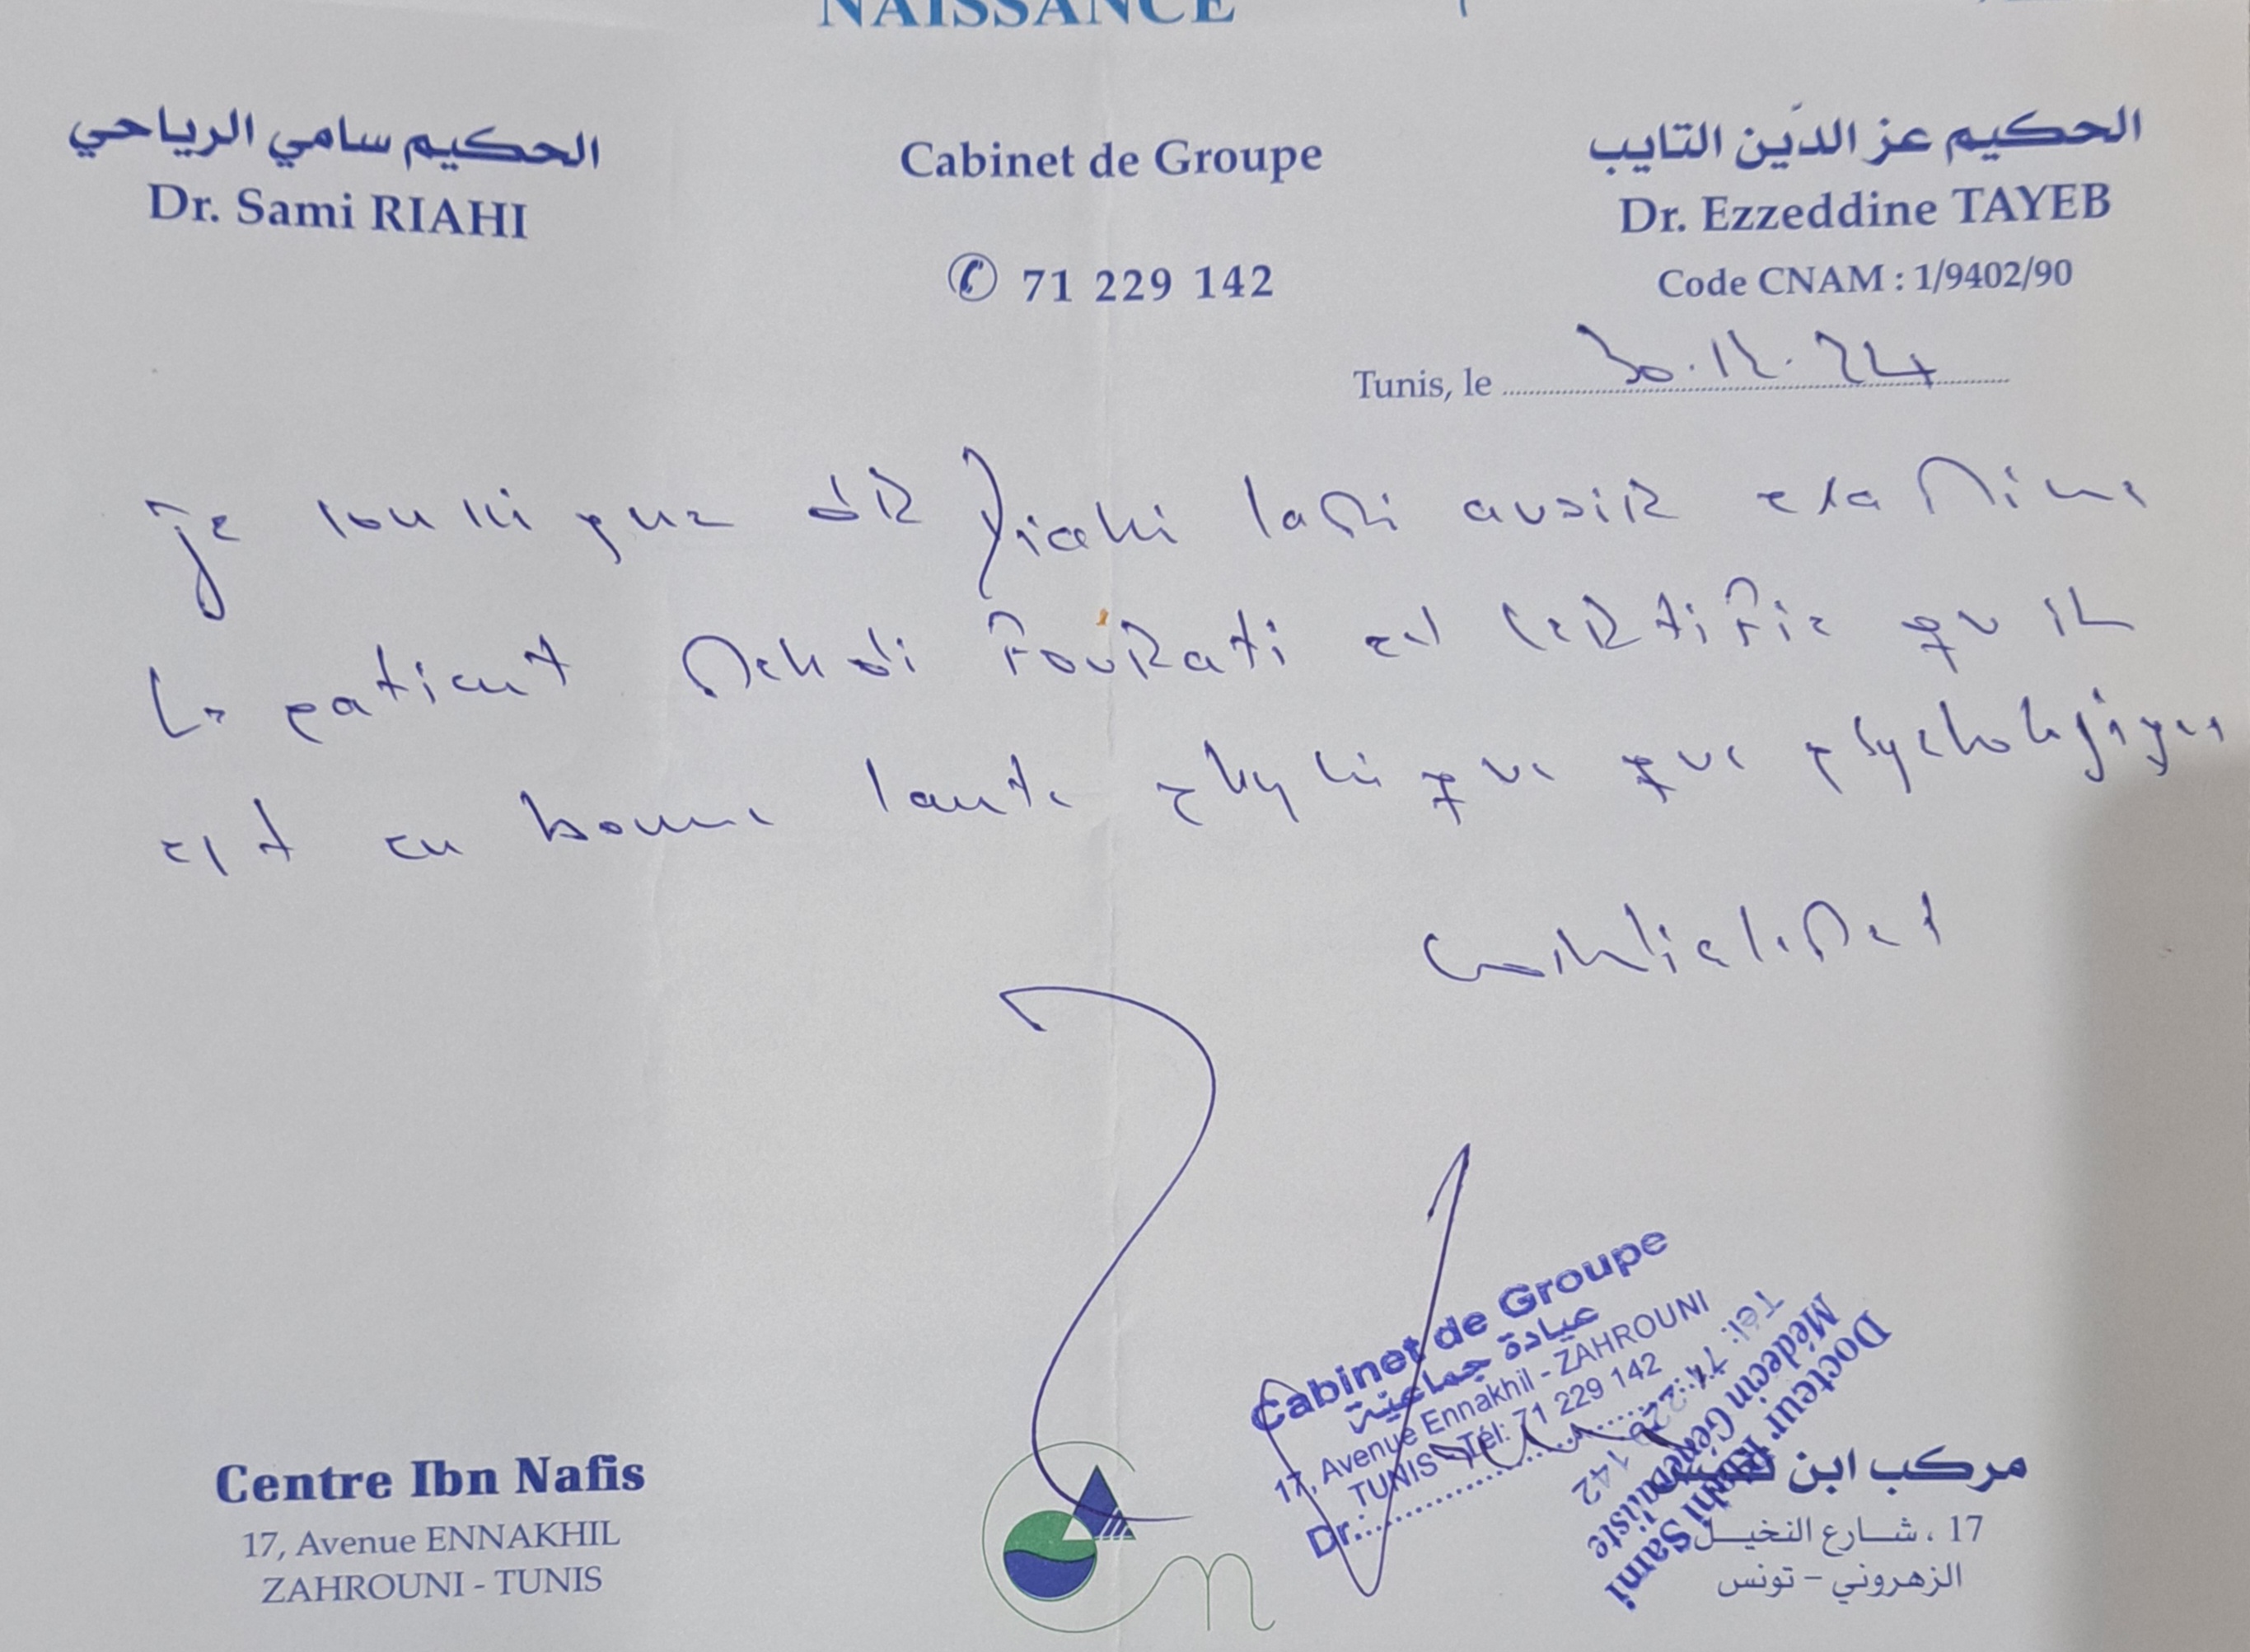 NAISSANCE
الحكيم سامي الرياحي
Dr. Sami RIAHI
Cabinet de Groupe
✆ 71 229 142
الحكيم عز الدّين التايب
Dr. Ezzeddine TAYEB
Code CNAM : 1/9402/90
Tunis, le 30.12.24
Je soussigne dr Riahi Sami avoir examine
le patient Mehdi Fourati et certifie qu il
est en bonne sante physique que psychologique
Cordialement
Cabinet de Groupe
عيادة جماعية
17, Avenue Ennakhil - ZAHROUNI
TUNIS - Tél: 71 229 142
Dr.:
Docteur Riahi Sami
Médecin Généraliste
Tél: 71 229 142
Centre Ibn Nafis
17, Avenue ENNAKHIL
ZAHROUNI - TUNIS
مركب ابن
17 ، شارع النخيل
الزهروني - تونس